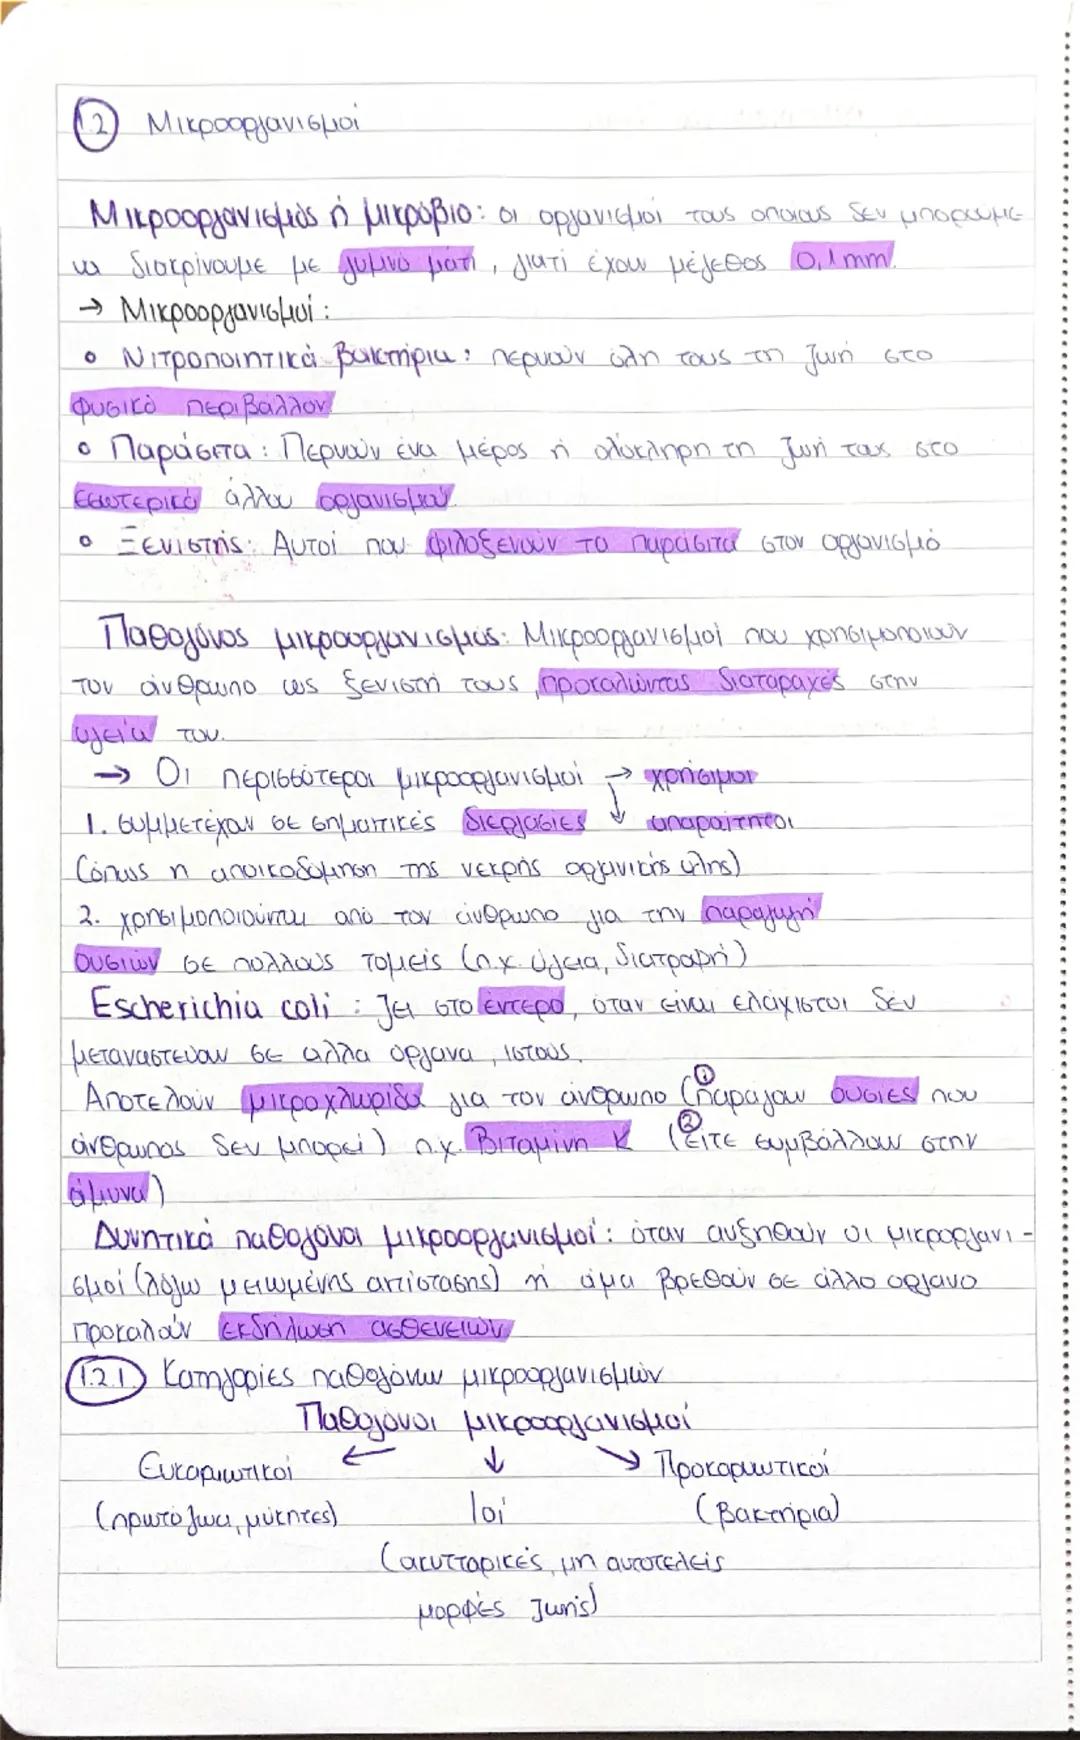 1.2 Μικροοργανισμοί
Μικροοργανισμός ή μικρόβιο: οι οργανισμοί τους οποίους δεν μπορούμε
να διακρίνουμε με γυμνό μάτι, γιατί έχουν μέγεθος 0,1mm.
→ Μικροοργανισμοί:
• Νιτροποιητικά βακτήρια: περνούν όλη τους τη ζωή στο
φυσικό περιβάλλον
• Παράσιτα: Περνούν ένα μέρος ή ολόκληρη τη ζωή τους στο
εσωτερικό άλλου οργανισμού.
• Ξενιστής: Αυτοί που φιλοξενούν το παράσιτα στον οργανισμό
Παθογόνος μικροοργανισμός: Μικροοργανισμοί που χρησιμοποιούν
τον άνθρωπο ως ξενιστή τους, προκαλώντας διαταραχές στην
υγεία του.
→ Οι περισσότεροι μικροοργανισμοί → χρήσιμοι
1. συμμετέχουν σε σημαντικές διεργασίες ↓ απαραίτητοι
(όπως η αποικοδόμηση της νεκρής οργανικής ύλης)
2. χρησιμοποιούνται από τον άνθρωπο για την παραγωγή
ουσιών σε πολλούς τομείς (π.χ. υγεια, διατροφή)
Escherichia coli: ζει στο έντερο, όταν είναι ελάχιστοι δεν
μεταναστεύουν σε αλλα όργανα, ιστούς.
Αποτελούν μικροχλωρίδα για τον άνθρωπο (① παράγουν ουσίες που
άνθρωπος δεν μπορεί) π.χ. Βιταμίνη Κ (② είτε συμβάλλουν στην
άμυνα)
Δυνητικά παθογόνοι μικροοργανισμοί: όταν αυξηθούν οι μικροργανι-
σμοί (λόγω μειωμένης αντίστασης) ή άμα βρεθούν σε άλλο οργανο
προκαλούν εκδήλωση ασθενειών
1.2.1 Κατηγορίες παθογόνων μικροοργανισμών
Παθογόνοι μικροοργανισμοί
Ευκαρυωτικοί ← ↓ → Προκαρυωτικοί
(πρωτόζωα, μύκητες) Ιοί (βακτήρια)
(ακυτταρικές, μη αυτοτελείς
μορφές ζωής)